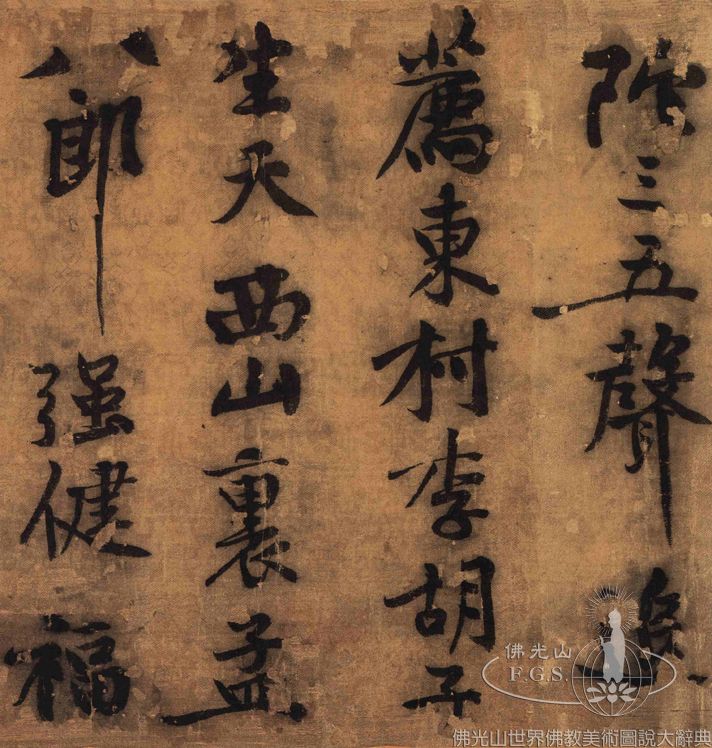 陀三五聲追
薦東村李胡子
生天西山裏孟
八郎强健福
佛光山
F.G.S.
佛光山世界佛教美術圖說大辭典